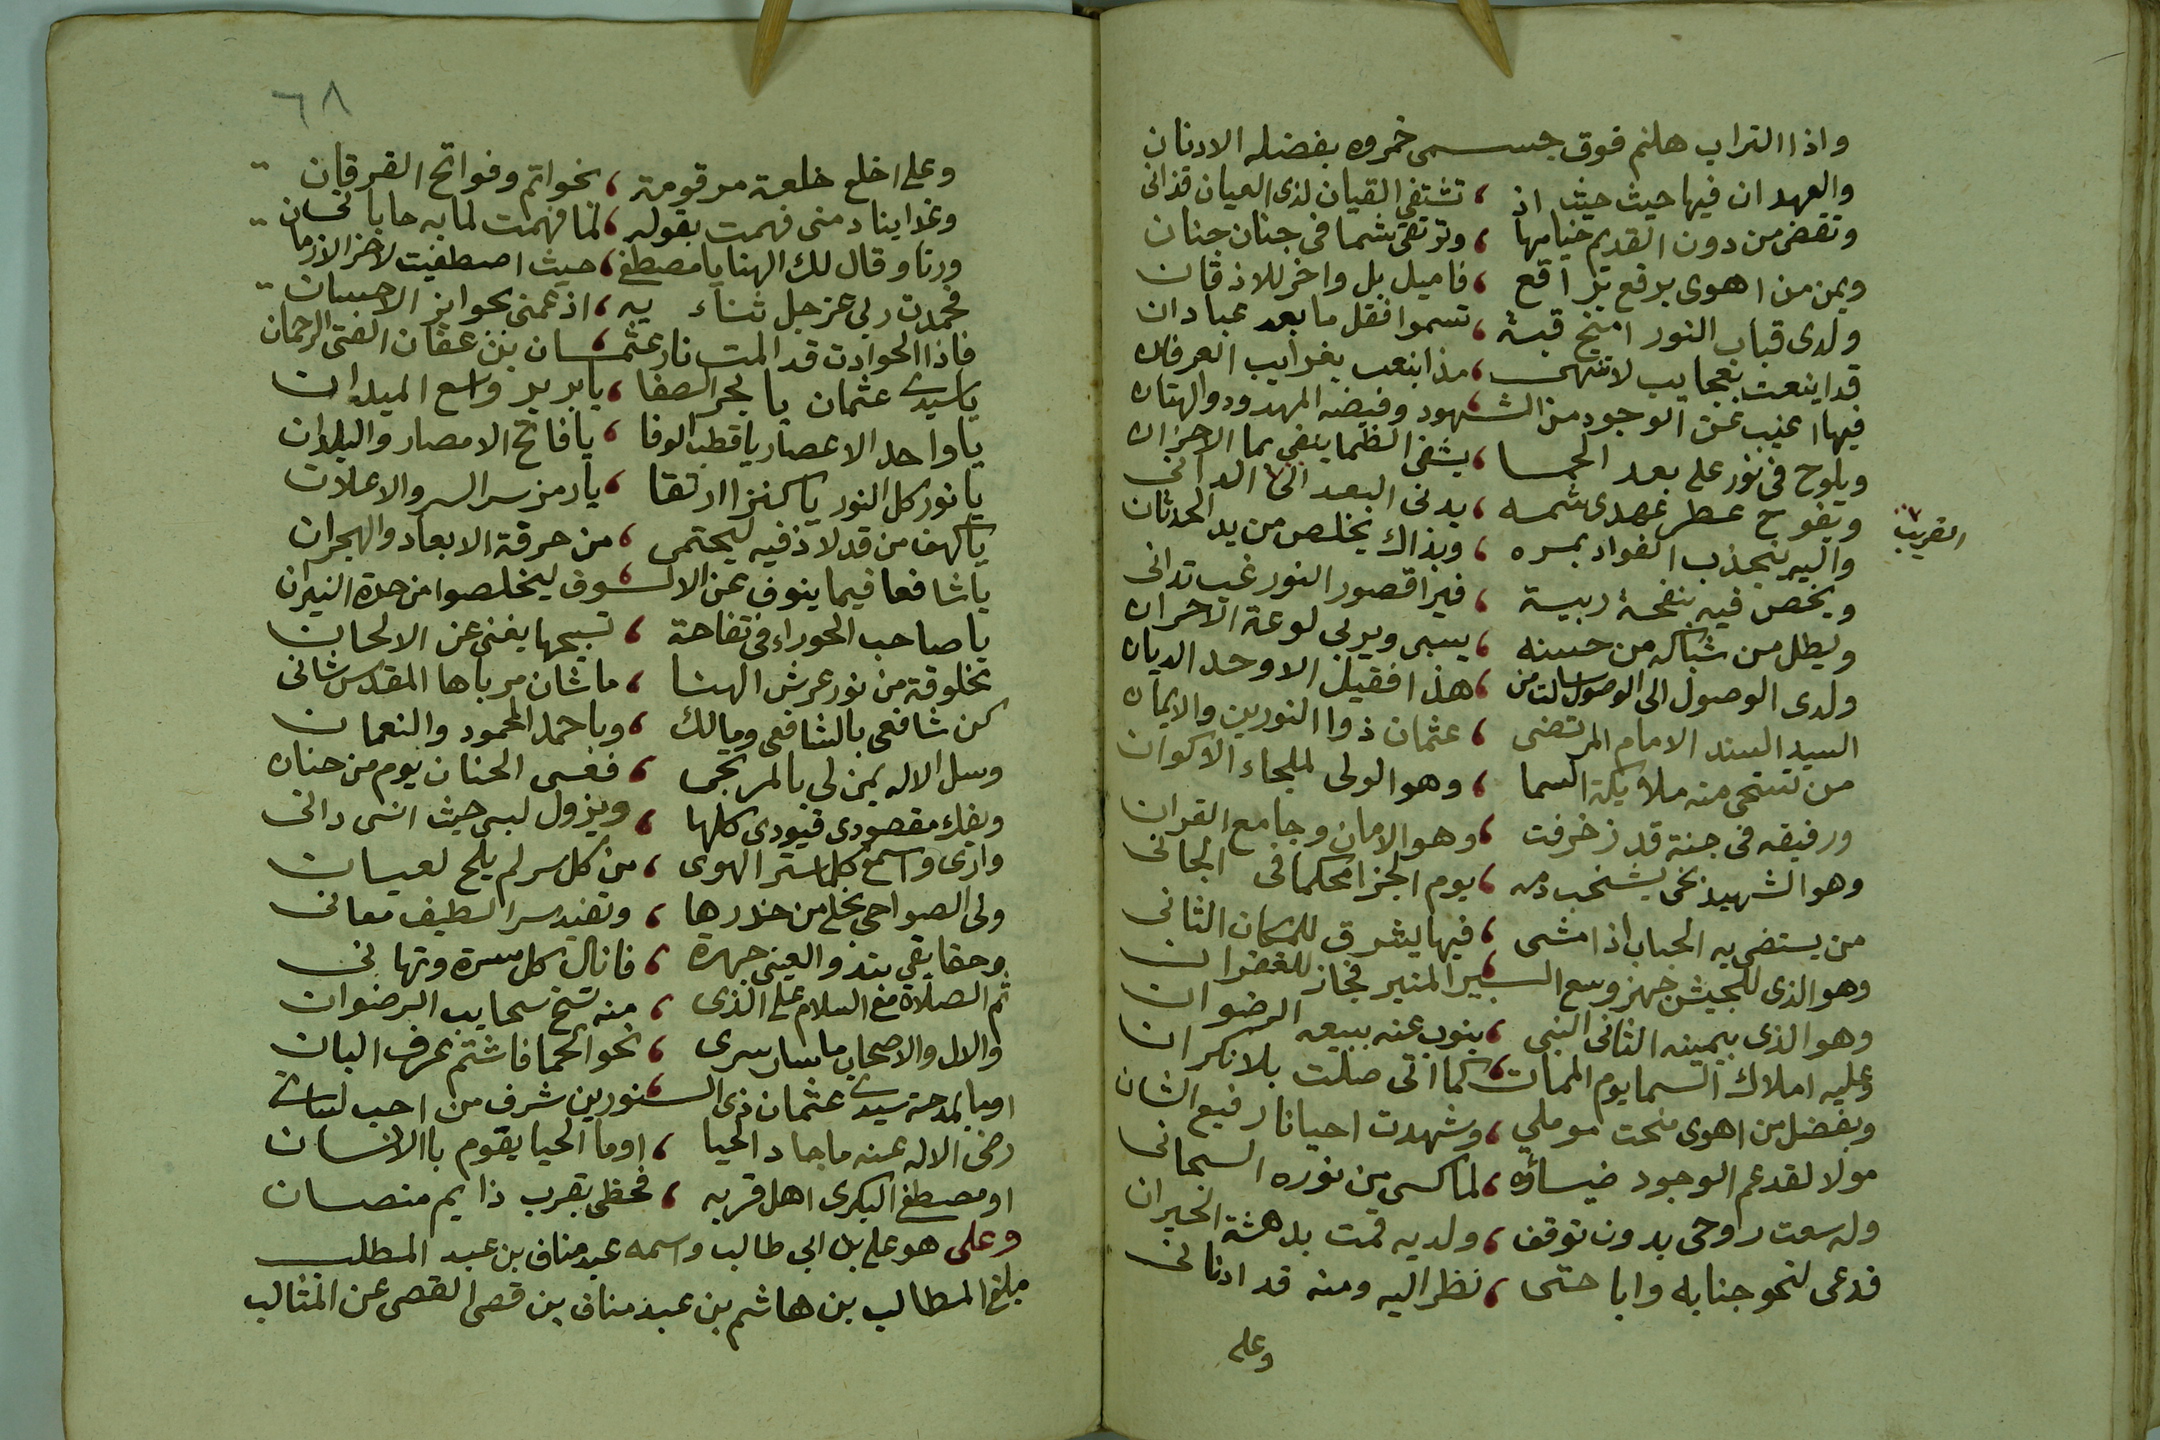 واذا التراب هلتم فوق جسمى خمروه بفضله الادنان
والعهد ان فيها حيث حيث اذ ، تشتفي القيان لذى العيان قذانى
وتقض من دون القديم خيامها ، وترتقى شما فى جنان جنان
ويمن من اهوى برقع براقع ، فاميل بل واخر للاذقان
ولدى قباب النور امنح قبة ، تسموا فقل ما بعد عبادان
قد اينعت بعجايب لا تنتهى ، مذ اينعت بغرايب العرفان
فيها اغيب عن الوجود من الشهود وفيضه المهدود والهتان
ويلوح فى نور على بعد الحما ، يشفى الظما ينفى بما الاحزان
ويفوح عطر عهدى شمه ، يدنى البعد الى الدانى
القريب
واليه تنجذب الفواد بسره ، وبذاك يخلص من يد الحدثان
ويخص فيه بنفحة ربية ، فيرا قصور النور غب تدانى
ويطل من شباكه من حسنه ، يسبى ويربى لوعة الاحران
ولدى الوصول الى الوصول سالت من ، هذا فقيل الاوحد الديان
السيد السند الامام المرتضى ، عثمان ذوا النورين والايمان
من تستحى منه ملايكة السما ، وهو الولى لملجاء الاكوان
ورفيقه فى جنة قد زخرفت ، وهو الامان وجامع القران
وهو الشهيد نحى يشخب دمه ، يوم الجزا محكما فى الجانى
من يستضى به الحباب اذا مشى ، فيها يشرق للمكان الثانى
وهو الذى للجيش جهز وسع البير المنير فجاز للغفران
وهو الذى بيمينه الثانى النبى ، ينوب عنه ببيعه الرضوان
وعليه املاك السما يوم الممات كما اتى صلت بلا نكران
وبفضل من اهوى منحت موملي ، وشهدت احيانا رفيع الشان
مولا لقد عم الوجود ضياؤه ، لما كسى من نوره السبحانى
وله سعت روحى بدون توقف ، ولديه قمت بدهشة الحيران
فدعى لنحو جنابه وابا حتى ، نظر اليه ومنه قد ادنانى
وعلى
٦٨
وعلى اخلع خلعة مرقومة ، بخواتم وفواتح الفرقان
وغدا ينادمنى فهمت بقوله ، لما فهمت لما به حابانى
ورنا وقال لك الهنا يا مصطفى ، حيث اصطفيت لاخر الازمان
فحمدت ربى عز جل ثناء به ، اذ عمنى بجوايز الاحسان
فاذا الحوادث قد المت ناد عثمان بن عفان الفتى الرحمان
يا سيدى عثمان يا بحر الصفا ، يا بر بر واسع الميدان
يا واحد الاعصار يا قطب الوفا ، يا فاتح الامصار والبلدان
يا نور كل النور يا كنز ارتقا ، يا رمز سر السر والاعلان
يا كهف من قد لاذ فيه ليحتمى ، من حرقة الابعاد والهجران
يا شافعا فيما ينوف عن الالوف ليخلصوا من حدة النيران
يا صاحب الحوراء فى تفاحة ، تسبيحها يغنى عن الالحان
مخلوقة من نور عرش الهنا ، ما شان مرباها المقدس شانى
كن شافعى بالشافعى ومالك ، وباحمد المحمود والنعمان
وسل الاله يمن لى بالمرتجى ، فعسى الحنان يوم من حنان
وبفك مقصودى قيودى كلها ، ويزول لبسى حيث انسى دانى
وارى واسمع كلما ستر الهوى ، من كل سر لم يلح لعيان
ولى الصواحى تجلى من خدرها ، وتفيد سر اللطيف معانى
وحقايقى تبدو العينى جهرة ، فانال كل مسرة وتهانى
ثم الصلاة مع السلام على الذى ، منه تسح سحايب الرضوان
والال والاصحاب ما سار سرى ، نحو الحما فاشتم عرف البان
اوبا لمدحة سيدى عثمان ذى النورين شرف من احب لسانى
رضى الاله عنه ما جاد الحيا ، اوما الحيا يقوم باالانسان
او مصطفى البكرى اهل قربه ، فحظى بقرب ذايم منصان
وعلى هو على بن ابى طالب واسمه عبد مناف بن عبد المطلب
مبلغ المطالب بن هاشم بن عبد مناف بن قصى القصى عن المثالب